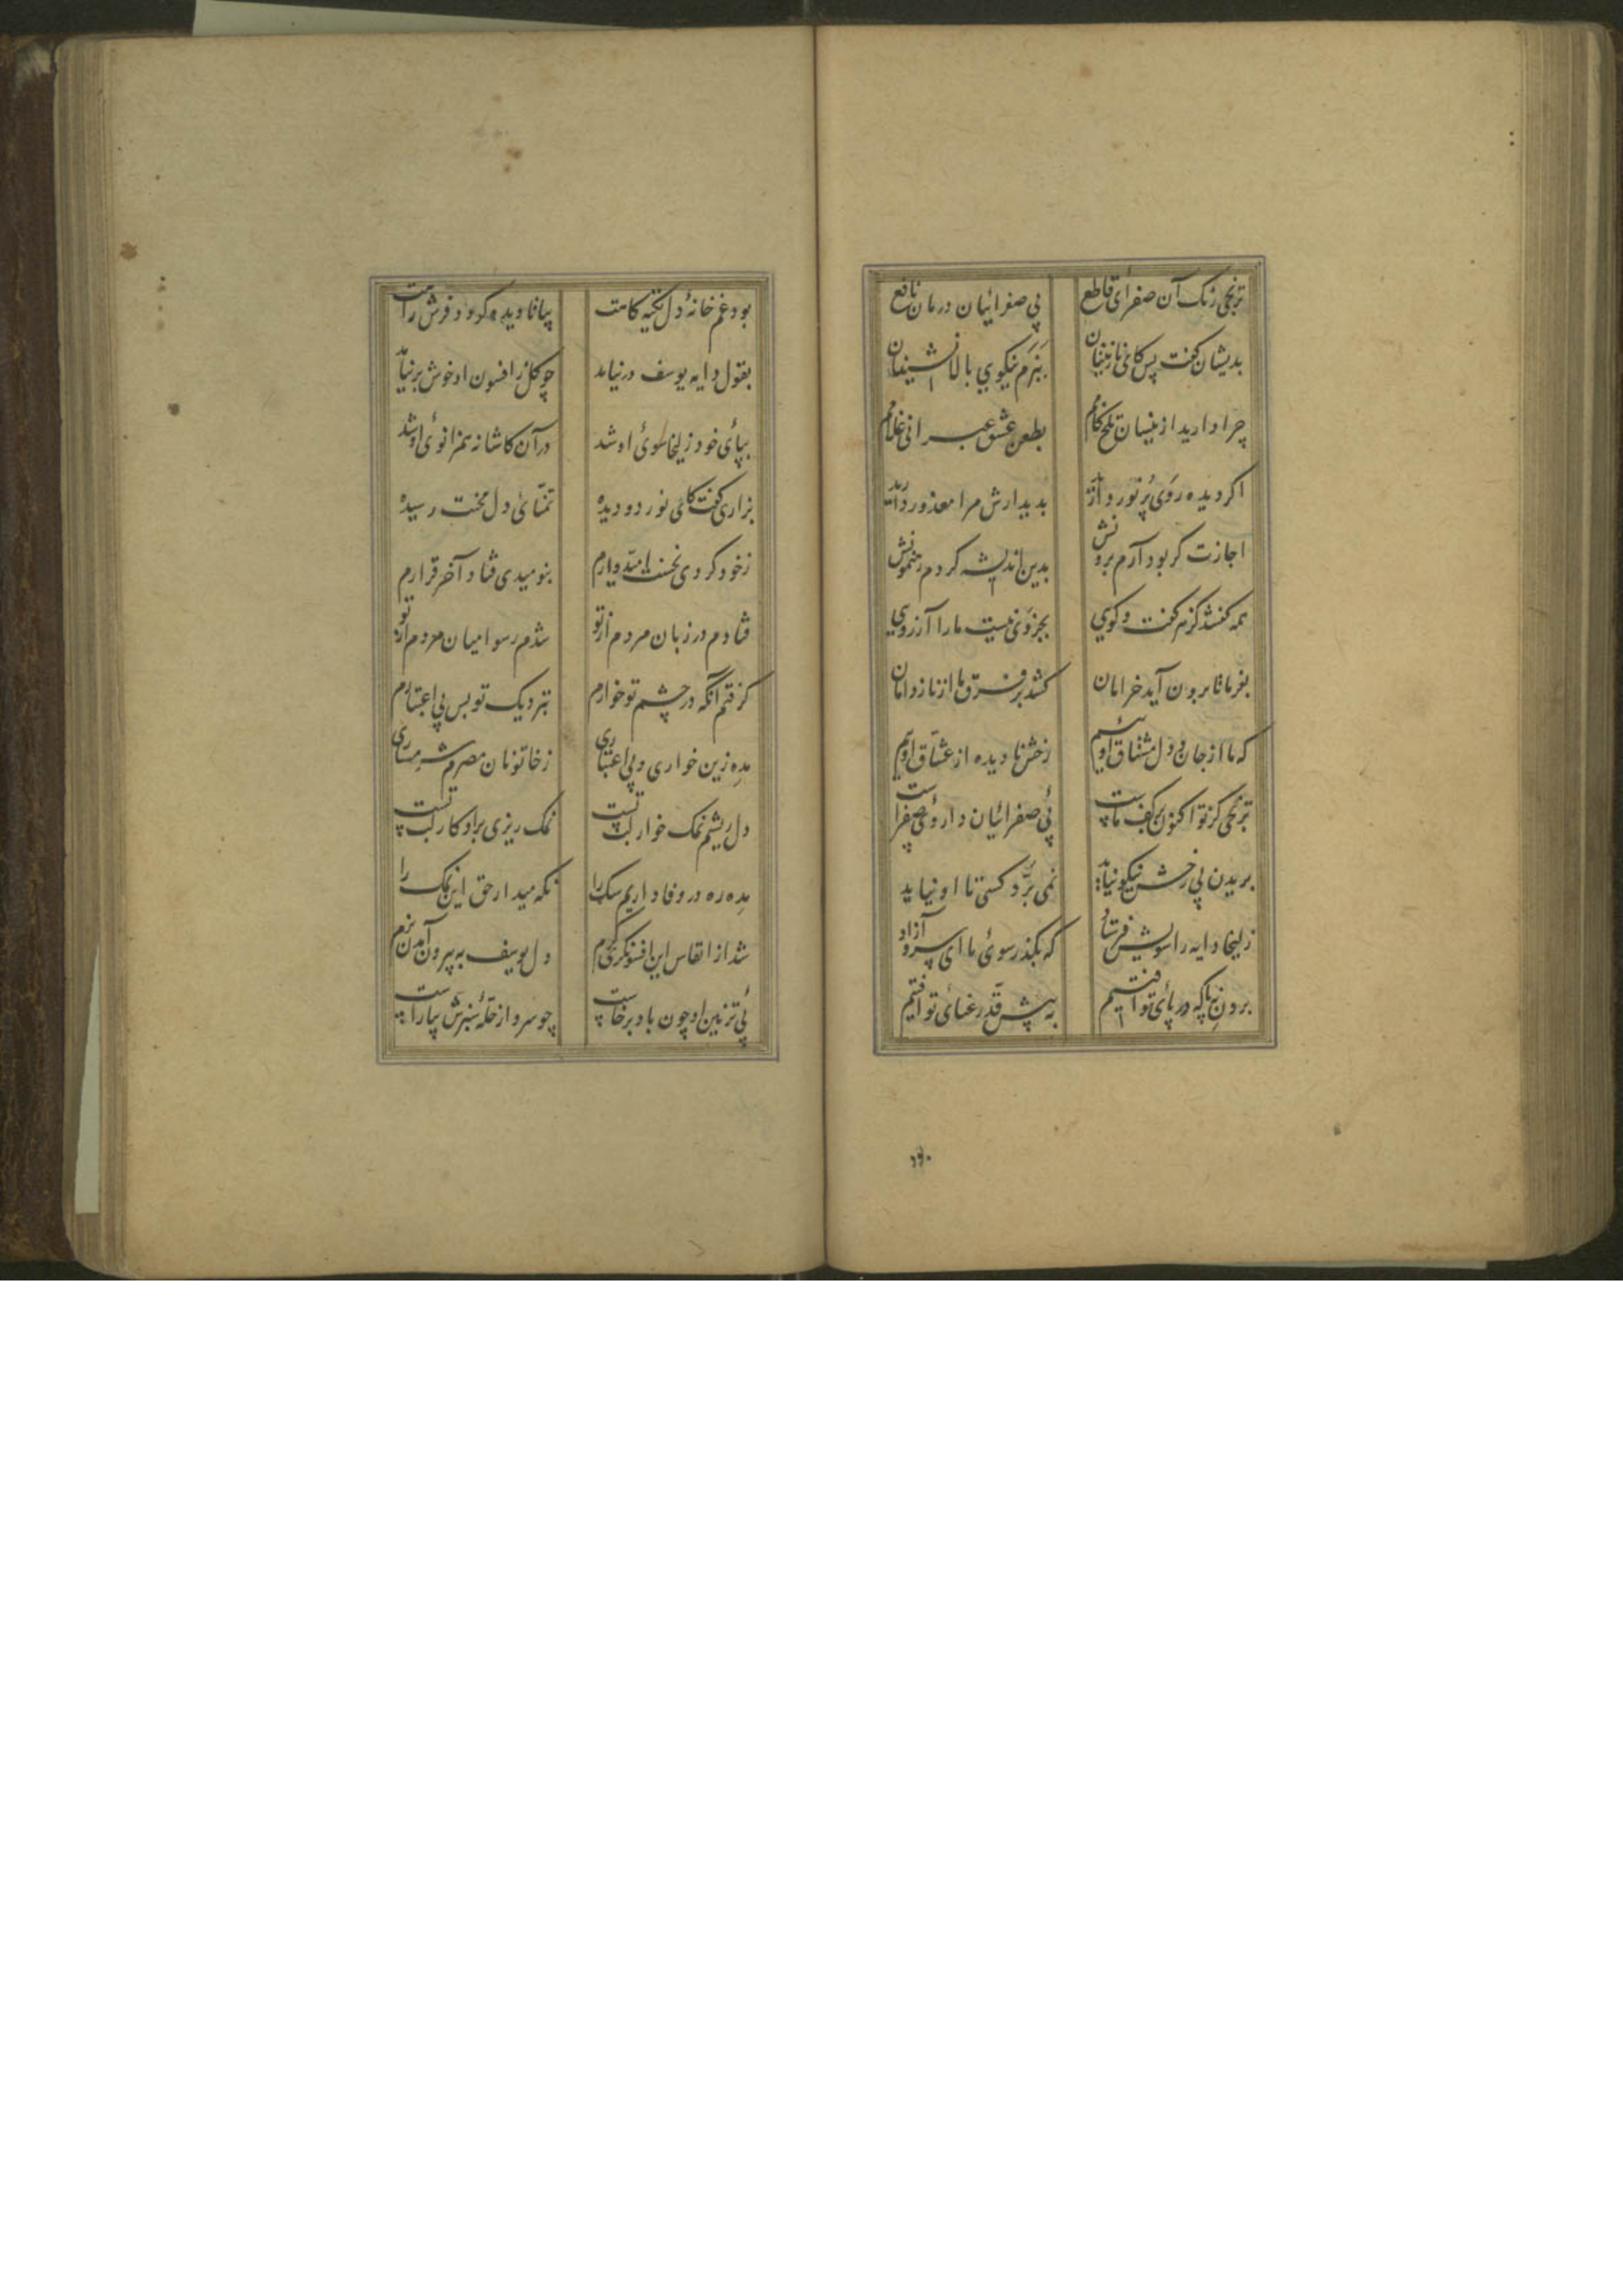 ترنجی رنک آن صفرای قاطع پی صفرائیان درمان نافع
بدیشان کفت پس کای نازنینان ببزم نیکویی بالانشینان
چرا دارید ازینسان تلخ کامم بطعن عشق عبرانی غلامم
اکر دیده ز وی پرنور دارید بدیدارش مرا معذور دارید
اجازت کر بود آرم برونش بدین اندیشه کردم رهنمونش
همه کفتند کز هر کفت و کویی بجز وی نیست ما را آرزویی
بفرما تا برون آید خرامان کشد بر فرق ما از ناز دامان
که ما از جان و دل مشتاق اوییم رخش نادیده از عشاق اوییم
ترنجی کز تو اکنون بر کف ماست پی صفرائیان داروی صفراست
بریدن بی رخش نیکو نیاید نمی برد کسی تا او نیاید
زلیخا دایه را سویش فرستاد که بکذر سوی ما ای سرو آزاد
برون نه پا که در پای تو افتیم به پیش قد رعنای تو افتیم
۱۶۰
بود غم خانهٔ دل تکیه کاهت بیا تا دیده کردد فرش راهت
بقول دایه یوسف در نیامد چو کل ز افسون او خوش بر نیامد
بپای خود زلیخا سوی او شد در آن کاشانه همزانوی او شد
بزاری کفت کای نور دو دیده تمنای دل محنت رسیده
ز خود کردی نخست امیدوارم بنومیدی فتاد آخر قرارم
فتادم در زبان مردم از تو شدم رسوا میان مردم از تو
کرفتم آنکه در چشم تو خوارم بنزدیک تو بس بی اعتبارم
مده زین خواری و بی اعتباری ز خاتونان مصرم شرمساری
دل ریشم نمک خوار لب تست نمک ریزی بر او کار لب تست
مده ره در وفاداریم شک را نکه میدار حق این نمک را
شد از انفاس این افسونکر کرم دل یوسف به بیرون آمدن نرم
پی تزیین او چون باد برخاست چو سرو از حلهٔ سبزش بیاراست